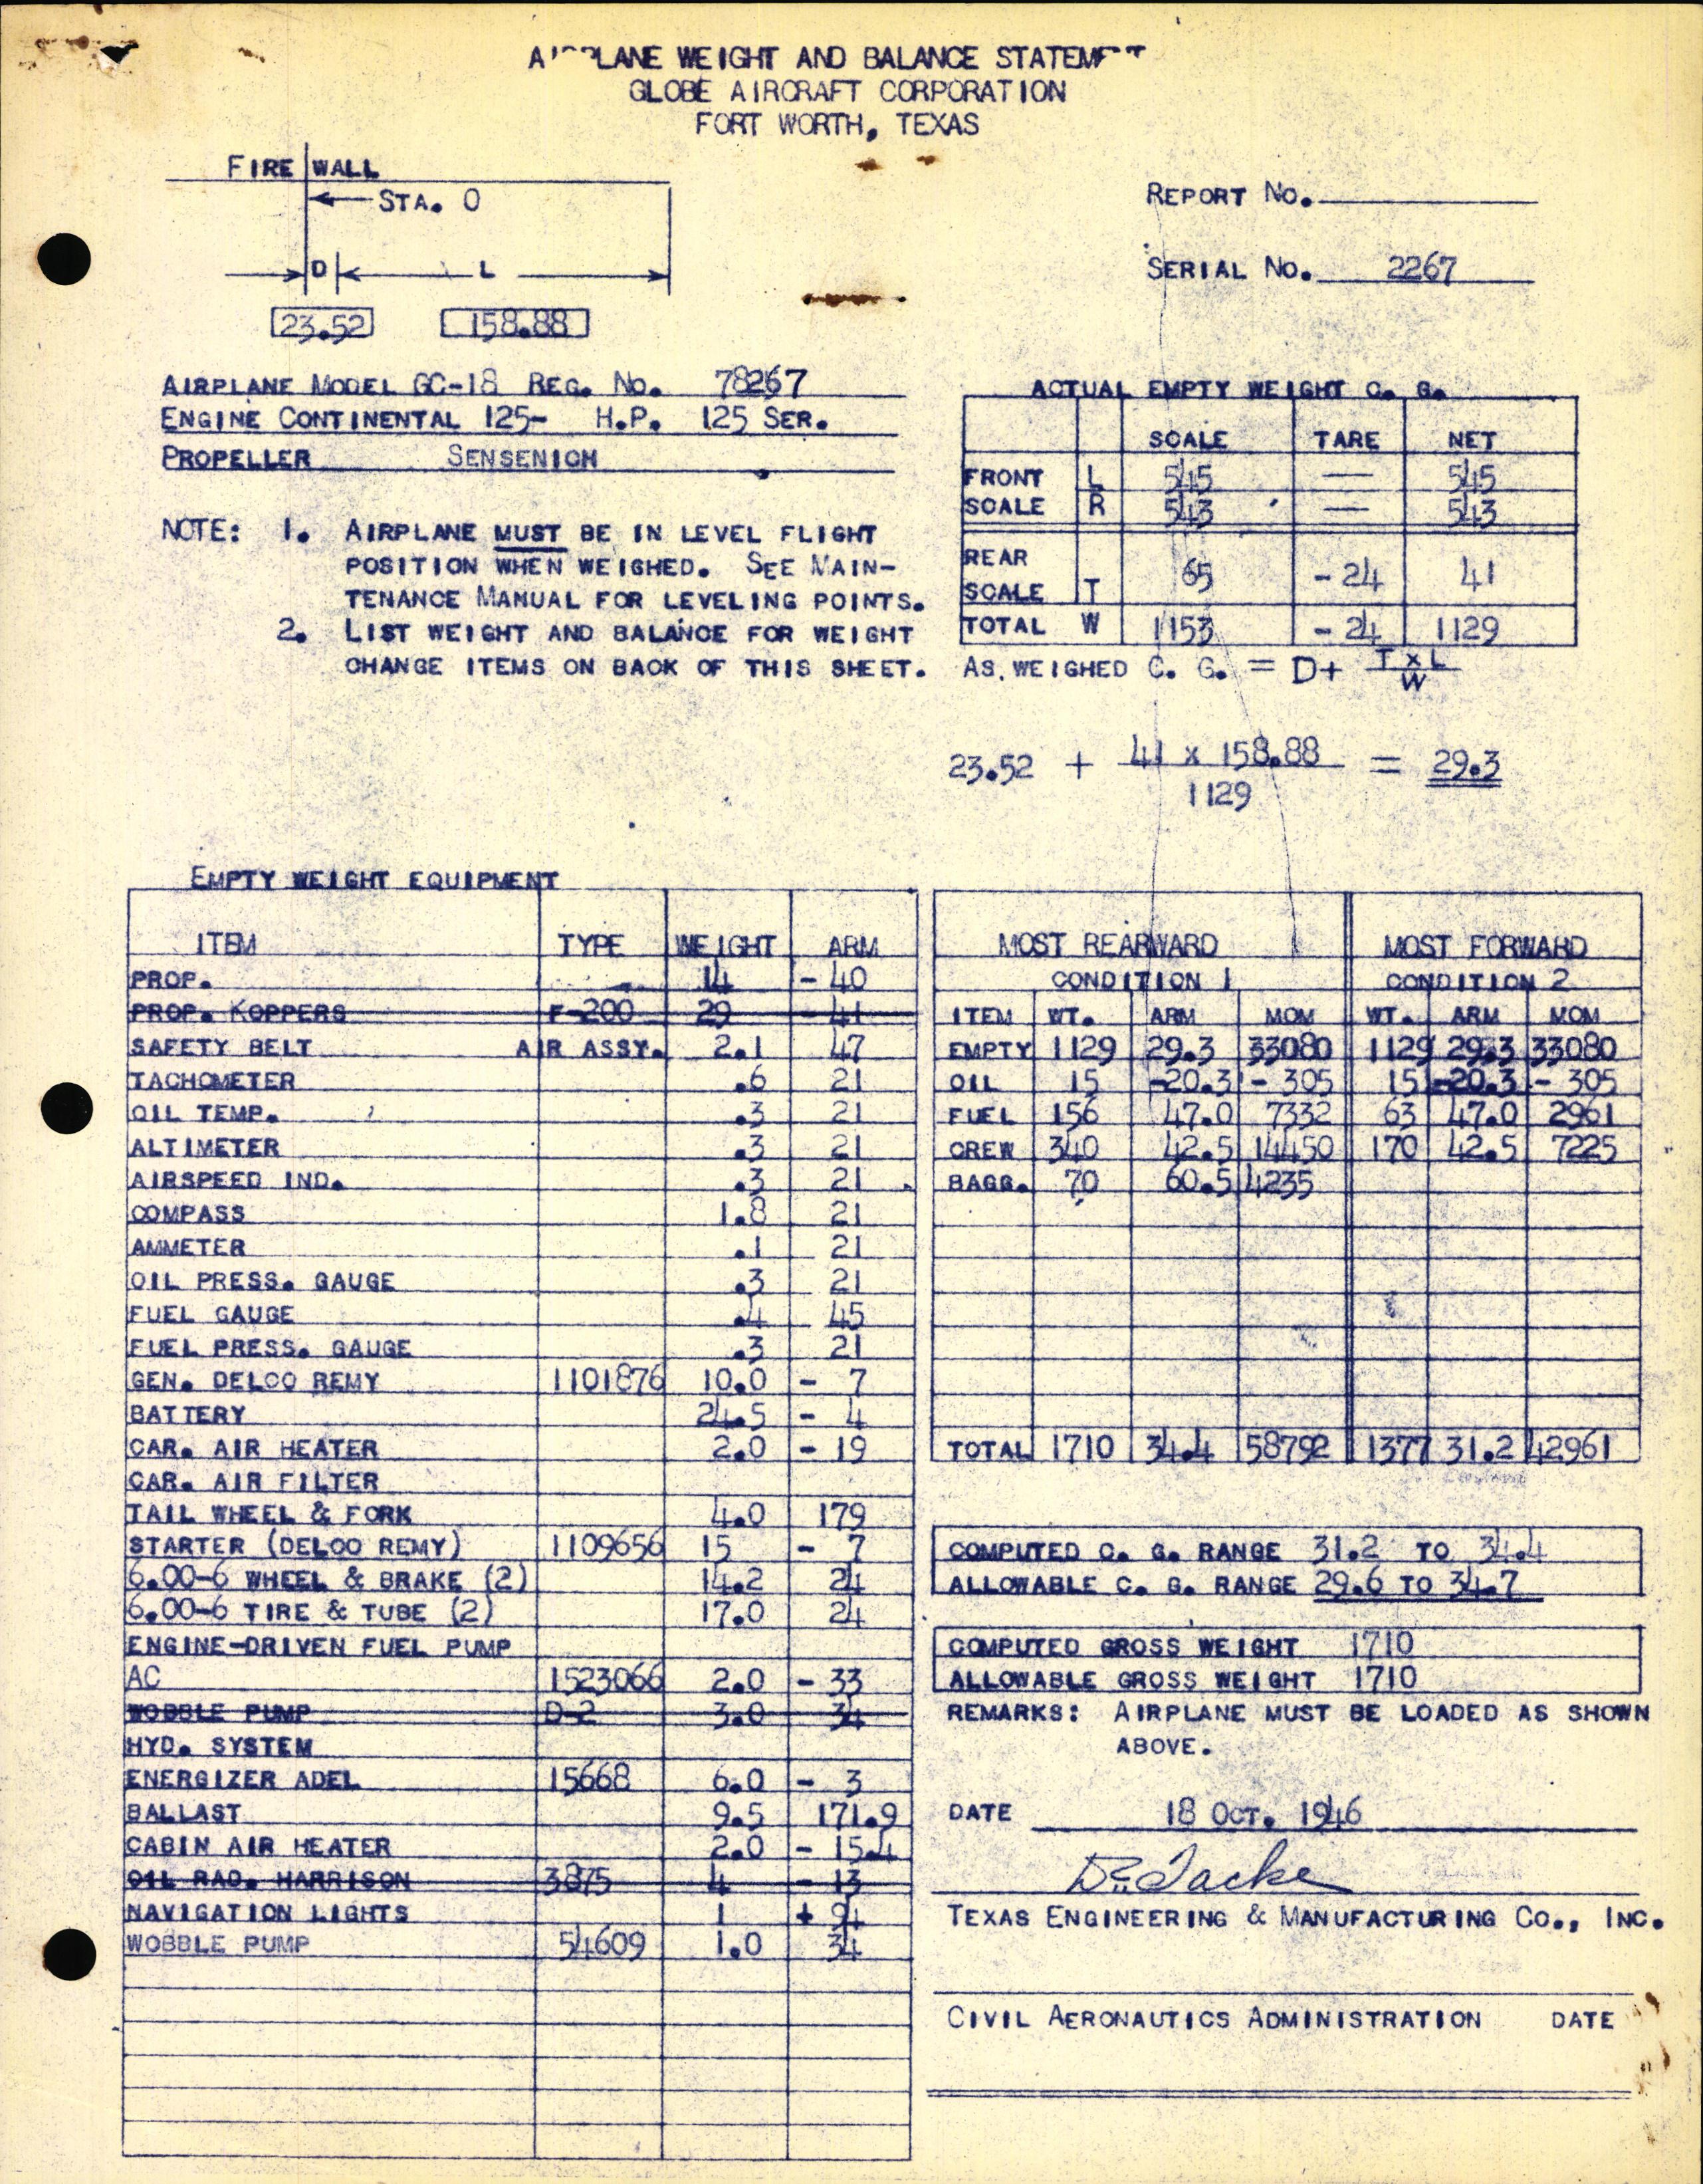 AIRPLANE WEIGHT AND BALANCE STATEMENT
GLOBE AIRCRAFT CORPORATION
FORT WORTH, TEXAS
FIRE WALL
STA. 0
D L
23.52 158.88
REPORT NO.
SERIAL NO. 2267
AIRPLANE MODEL GC-1B REG. NO. 78267
ENGINE CONTINENTAL 125- H.P. 125 SER.
PROPELLER SENSENICH
NOTE: 1. AIRPLANE MUST BE IN LEVEL FLIGHT
POSITION WHEN WEIGHED. SEE MAIN-
TENANCE MANUAL FOR LEVELING POINTS.
2. LIST WEIGHT AND BALANCE FOR WEIGHT
CHANGE ITEMS ON BACK OF THIS SHEET.
ACTUAL EMPTY WEIGHT C. G.
SCALE TARE NET
FRONT L 545 — 545
SCALE R 543 — 543
REAR
SCALE T 65 -24 41
TOTAL W 1153 -24 1129
AS WEIGHED C. G. = D+ T x L
W
23.52 + 41 x 158.88 = 29.3
1129
EMPTY WEIGHT EQUIPMENT
ITEM TYPE WEIGHT ARM
PROP. 14 - 40
PROP. KOPPERS F-200 29 - 41
SAFETY BELT AIR ASSY. 2.1 47
TACHOMETER .6 21
OIL TEMP. .3 21
ALTIMETER .3 21
AIRSPEED IND. .3 21
COMPASS 1.8 21
AMMETER .1 21
OIL PRESS. GAUGE .3 21
FUEL GAUGE .4 45
FUEL PRESS. GAUGE .3 21
GEN. DELCO REMY 1101876 10.0 - 7
BATTERY 24.5 - 4
CAR. AIR HEATER 2.0 - 19
CAR. AIR FILTER
TAIL WHEEL & FORK 4.0 179
STARTER (DELCO REMY) 1109656 15 - 7
6.00-6 WHEEL & BRAKE (2) 14.2 24
6.00-6 TIRE & TUBE (2) 17.0 24
ENGINE-DRIVEN FUEL PUMP
AC 1523066 2.0 - 33
WOBBLE PUMP D-2 3.0 34
HYD. SYSTEM
ENERGIZER ADEL 15668 6.0 - 3
BALLAST 9.5 171.9
CABIN AIR HEATER 2.0 - 15.4
OIL RAD. HARRISON 3875 4 - 13
NAVIGATION LIGHTS 1 + 94
WOBBLE PUMP 54609 1.0 34
MOST REARWARD MOST FORWARD
CONDITION 1 CONDITION 2
ITEM WT. ARM MOM WT. ARM MOM
EMPTY 1129 29.3 33080 1129 29.3 33080
OIL 15 -20.3 - 305 15 -20.3 - 305
FUEL 156 47.0 7332 63 47.0 2961
CREW 340 42.5 14450 170 42.5 7225
BAGG. 70 60.5 4235
TOTAL 1710 34.4 58792 1377 31.2 42961
COMPUTED C. G. RANGE 31.2 TO 34.4
ALLOWABLE C. G. RANGE 29.6 TO 34.7
COMPUTED GROSS WEIGHT 1710
ALLOWABLE GROSS WEIGHT 1710
REMARKS: AIRPLANE MUST BE LOADED AS SHOWN
ABOVE.
DATE 18 OCT. 1946
TEXAS ENGINEERING & MANUFACTURING CO., INC.
CIVIL AERONAUTICS ADMINISTRATION DATE